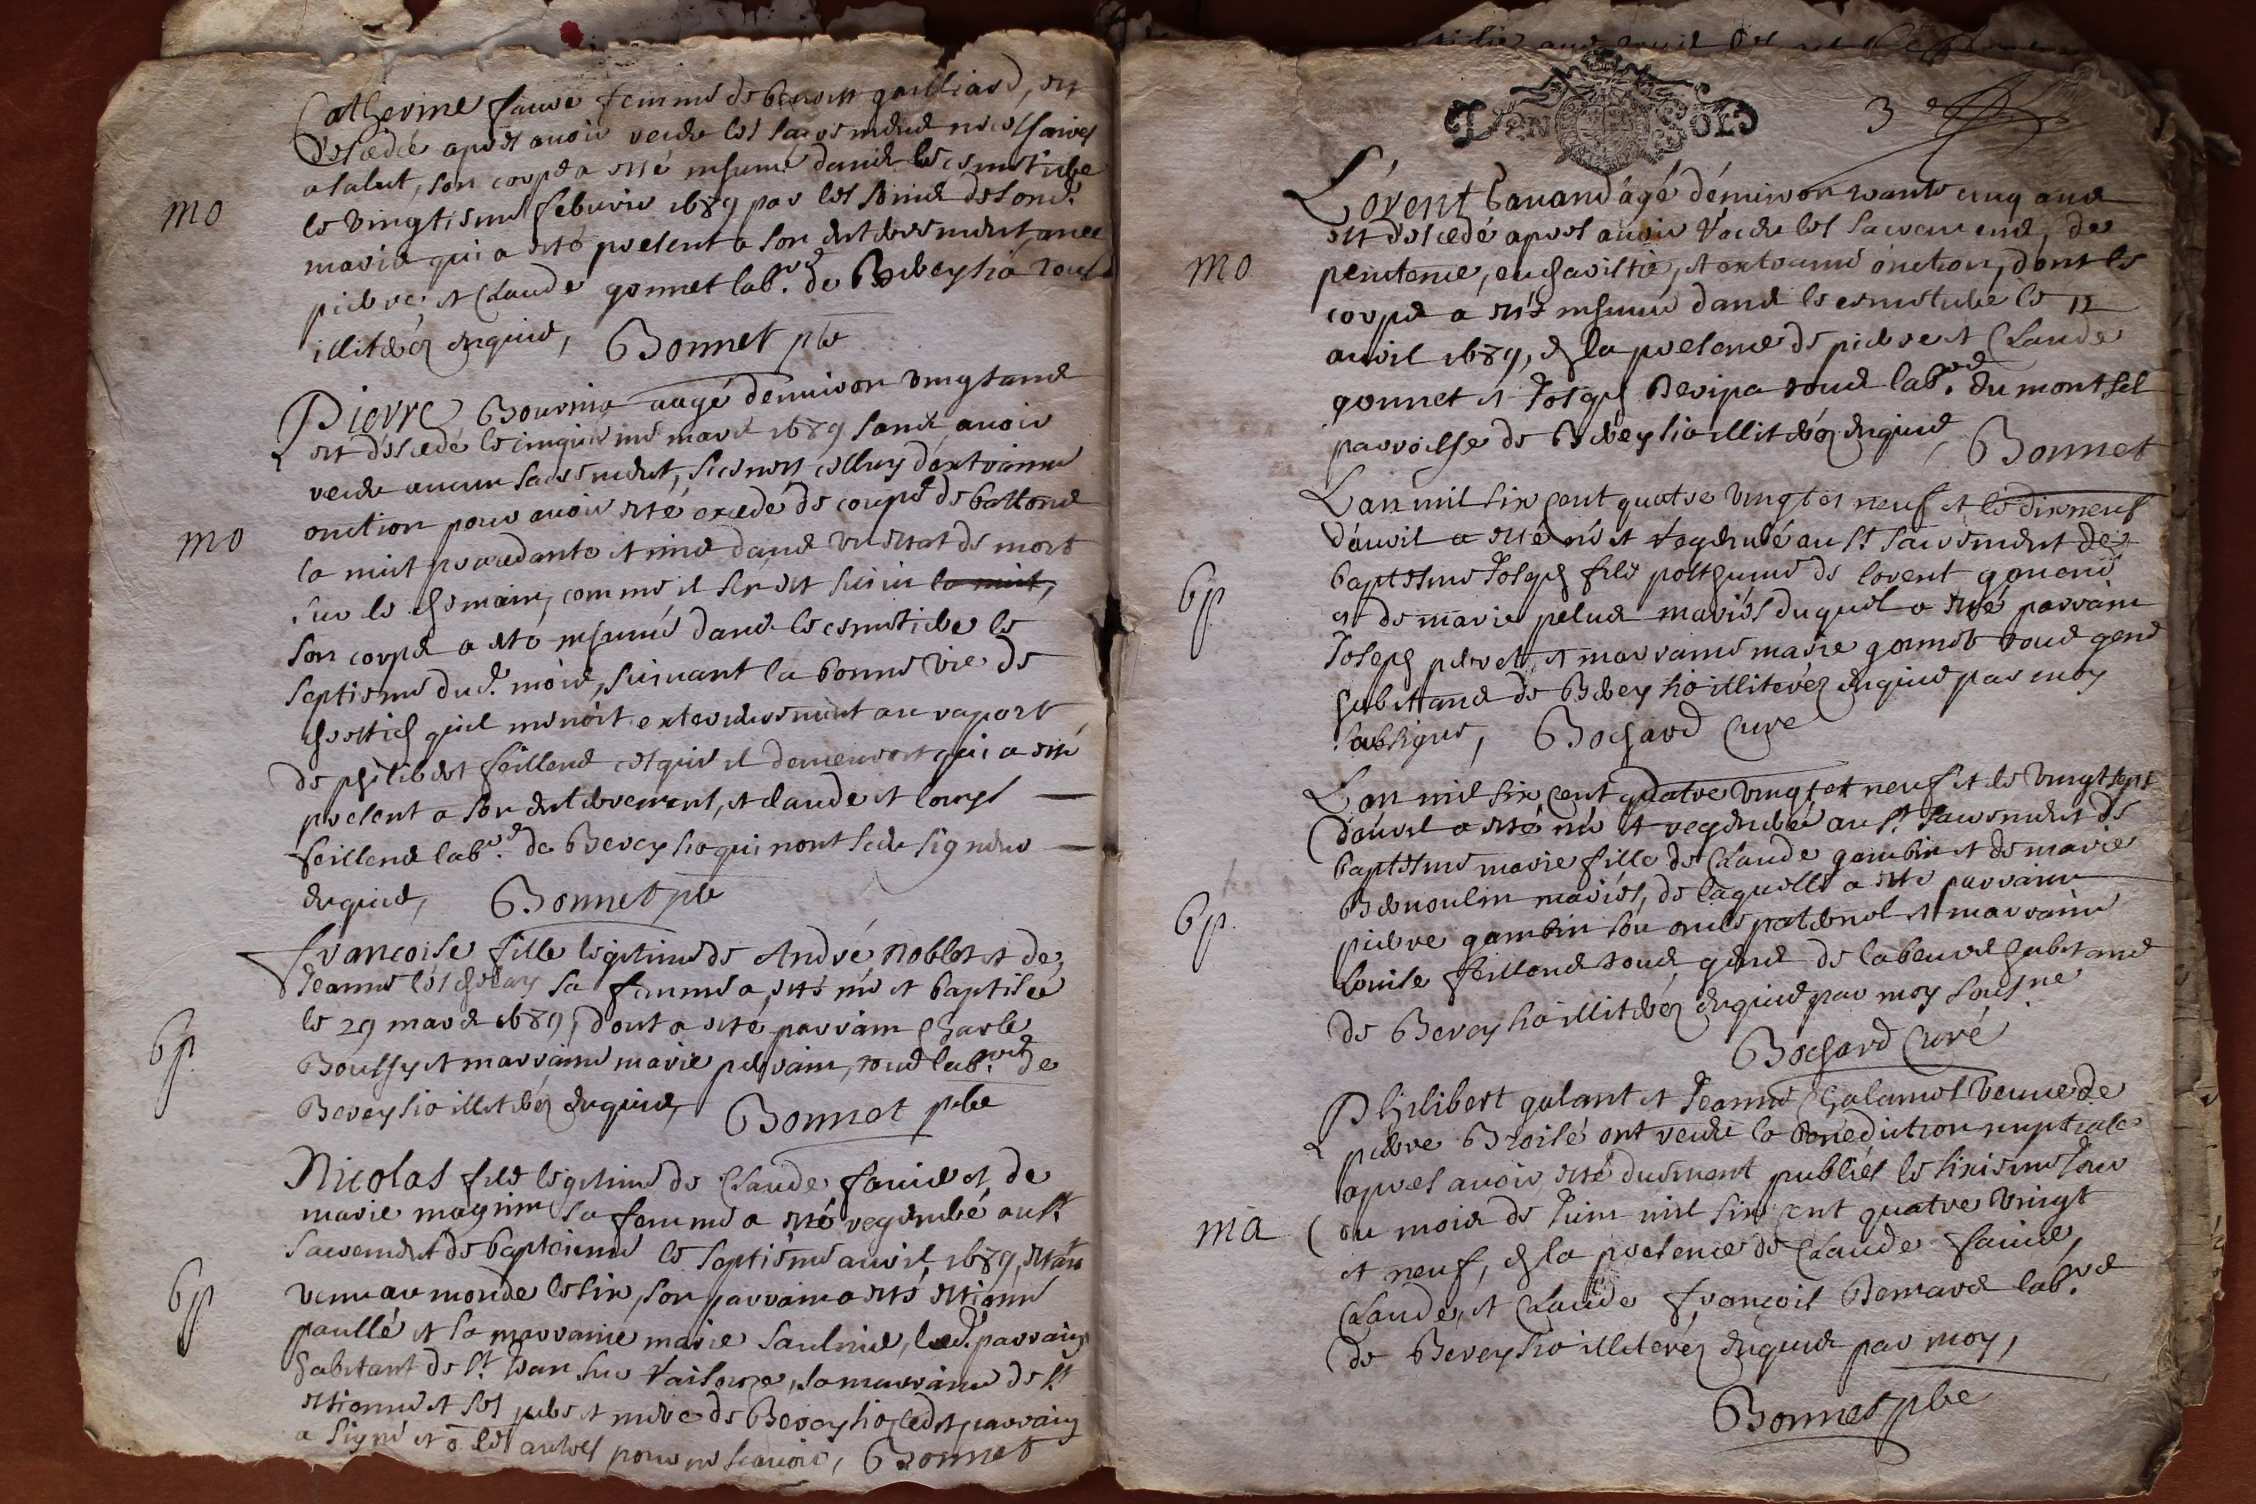 Catherine faure femme de benoist gailliard, est
decedée apres avoir receu les sacremens necessaires
a salut, son corps a esté inhumé dans le cemetiere
mo
le vingtiesme febvrier 1689 par les soins de sond.
maris qui a esté present a son enterrement, avec
pierre et Claude gonnet labrs. de Bereysia tous
illiterez enquis, Bonnet pbr
Pierre Bourvia aagé d'environ vingt ans
est décedé le cinquiesme mars 1689 sans avoir
receu aucun sacrement, si ce n'est celluy d'extreme
mo
onction pour avoir esté excedé de coups de battons
la nuit precedante et mis dans un estat de mort
sur le chemain, comme il s'en est suivi la nuit,
son corps a esté inhumé dans le cemetiere le
septiesme dud. mois, suivant la bonne vie de
chrestien quil menoit exterieurement au raport
de philibert feillens chez qui il demeuroit qui a esté
present a son enterrement, et claude et louys
feillens labrs. de Bereysia qui n'ont sceu signer
enquis, Bonnet pbr
francoise fille legitime de André noblet et de
Jeanne sa femme a esté née et baptisée
bp.
le 29 mars 1689, dont a esté parrain Charle
Boussy et marraine marie pervain, tous labrs. de
Bereysia illiterez enquis, Bonnet pbre
Nicolas fils legitime de Claude faure et de
marie magnin sa femme a esté regeneré au st.
sacrement de baptesme le septiesme avril 1689, estant
bp
venu au monde le six, son parrain a esté estienne
paullé et sa marraine marie saulnier, led. parrain
habitant de st. Jean sur raisouze, la marraine de st
estienne et les pere et mere de Bereysia ledit parrain
a signé et non les autres pour ne scavoir, Bonnet
3e
Lorent Gavand âgé d'environ trante cinq ans
est decedé apres avoir receu les sacremens de
mo
penitence, eucharistie, et extreme onction, dont le
corps a esté inhumé dans le cemetiere le 12
avril 1689, en la presence de pierre et Claude
gonnet et Joseph Revipa tous labrs. du montsel
parroisse de Bereysia illiterez enquis, Bonnet
L'an mil six cent quatre vingt et neuf et le dixneuf
d'avril a esté né et regeneré au st. sacrement de
bp.
baptesme Joseph fils posthume de lorent gavand
et de marie pelus mariés duquel a esté parrain
Joseph pervet, et marraine marie gonnet tous gens
habitans de Bereysia illiterez enquis par moy
soubsigné, Bochard Cure
L'an mil six cent quatre vingt et neuf et le vingt sept
d'avril a esté née et regenerée au st. sacrement de
baptesme marie fille de Claude gambin et de marie
bp.
Bernoulin mariés, de laquelle a esté parrain
pierre gambin son oncle paternel et marraine
Louise feillens tous gens de labeurs habitans
de Bereysia illiterez enquis par moy sousne.
Bochard Curé
Philibert galant et Jeanne Chalamel veuve de
pierre Broisé ont receu la benediction nuptiale
apres avoir esté duement publiés le sixiesme Jour
ma
du mois de Juin mil six cent quatre vingt
et neuf, en la presence de Claude faure,
Claude, et Claude françois Bernard labrs.
de Bereysia illiterez enquis par moy,
Bonnet pbre